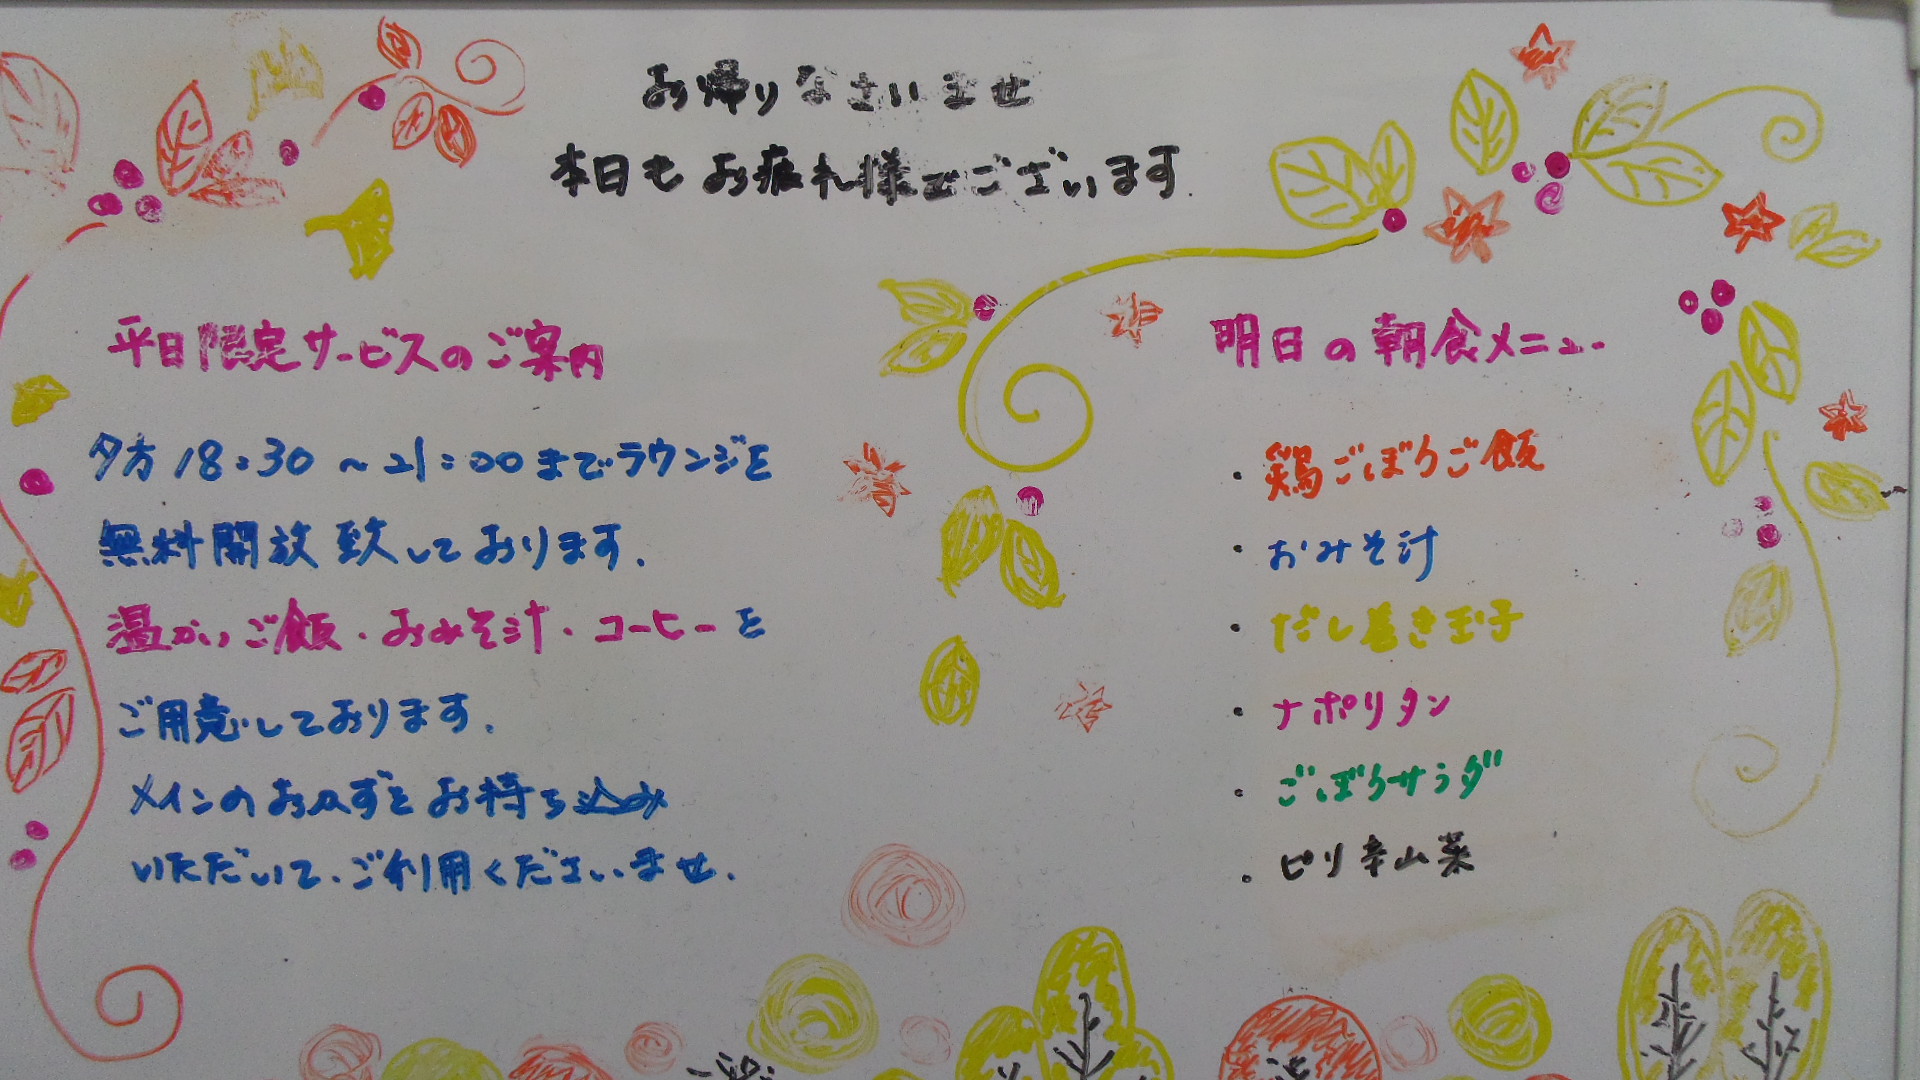 お帰りなさいませ
本日もお疲れ様でございます
平日限定サービスのご案内
夕方18:30～21:00までラウンジを
無料開放致しております.
温かいご飯・おみそ汁・コーヒーを
ご用意しております.
メインのおかずをお持ち込み
いただいて、ご利用くださいませ.
明日の朝食メニュー
・鶏ごぼうご飯
・おみそ汁
・だし巻き玉子
・ナポリタン
・ごぼうサラダ
・ピリ辛山菜